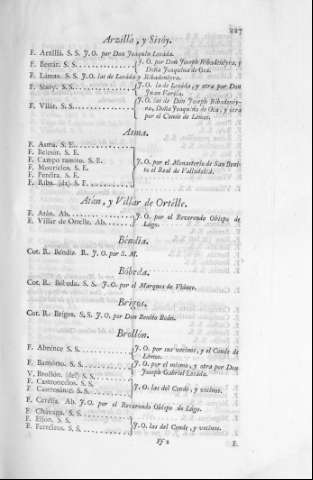 227
Arzilla, y Sisóy.
F. Arzillá. S. S. J. O. por Don Joaquin Losada.
F. Bestár. S. S. J. O. por Don Joseph Ribadeneyra, y Doña Joaquina de Oca.
F. Lámas. S. S. J. O. las de Losada y Ribadeneyra.
F. Sisóy. S. S. J. O. la de Losada, y otra por Don
F. Villár. S. S. J. O. las de Don Joseph Ribadeneyra, Doña Joaquina de Oca, y otra por el Conde de Lemos.
Asma.
F. Asma. S. E.
F. S. E.
F. Campo ramiro. S. E.
F. Mouricios. S. E.
F. Pereira. S. E.
F. Riba. S. E.
J. O. por el Monasterio de San Benito el Real de Valladolid.
Atán, y Villar de Ortélle.
F. Atán. Ab.
F. Villár de Ortelle. Ab.
J. O. por el Reverendo Obispo de Lugo.
Béndia.
Cot. R. Béndia. R. J. O. por S. M.
Bóbeda.
Cot. R. Bóbeda. S. S. J. O. por el Marques de
Brigos.
Cot. R. Brigos. S. S. J. O. por Don Benito
Brollón.
F. Abrénce S. S. J. O. por sus vecinos, y el Conde de Lemos.
F. S. S. J. O. por el mismo, y otra por Don Joseph Gabriel Losada.
V. Brollón. (del) S. S.
F. Castroncelos. S. S.
F. S. S.
J. O. las del Conde, y vecinos.
F. Ab. J. O. por el Reverendo Obispo de Lugo.
F. S. S.
F. S. S.
F. Ferreiros. S. S.
J. O. las del Conde, y vecinos.
F.